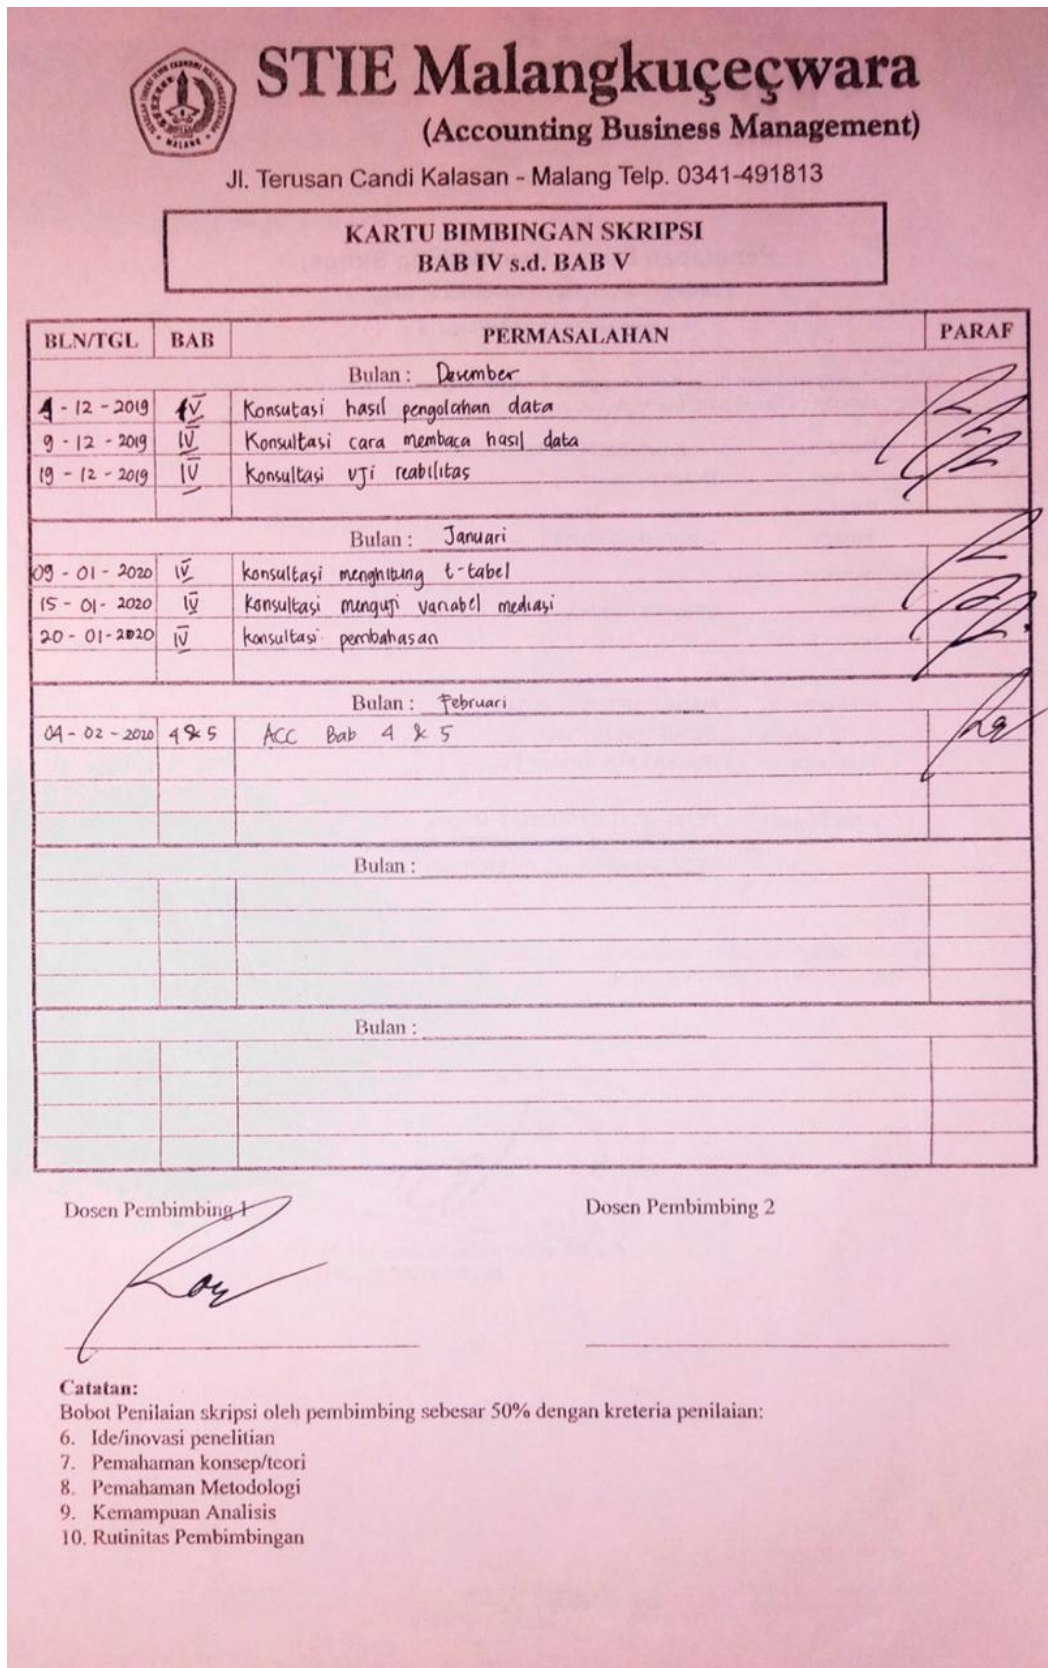 STIE Malangkuçeçwara
(Accounting Business Management)
MALANG
Jl. Terusan Candi Kalasan - Malang Telp. 0341-491813
KARTU BIMBINGAN SKRIPSI
BAB IV s.d. BAB V
BLN/TGL BAB PERMASALAHAN PARAF
Bulan : Desember
4 - 12 - 2019 IV Konsutasi hasil pengolahan data
9 - 12 - 2019 IV Konsultasi cara membaca hasil data
19 - 12 - 2019 IV Konsultasi uji reabilitas
Bulan : Januari
09 - 01 - 2020 IV konsultasi menghitung t-tabel
15 - 01 - 2020 IV konsultasi menguji variabel mediasi
20 - 01 - 2020 IV konsultasi pembahasan
Bulan : Februari
04 - 02 - 2020 4 & 5 ACC Bab 4 & 5
Bulan :
Bulan :
Dosen Pembimbing 1 Dosen Pembimbing 2
Catatan:
Bobot Penilaian skripsi oleh pembimbing sebesar 50% dengan kreteria penilaian:
6. Ide/inovasi penelitian
7. Pemahaman konsep/teori
8. Pemahaman Metodologi
9. Kemampuan Analisis
10. Rutinitas Pembimbingan